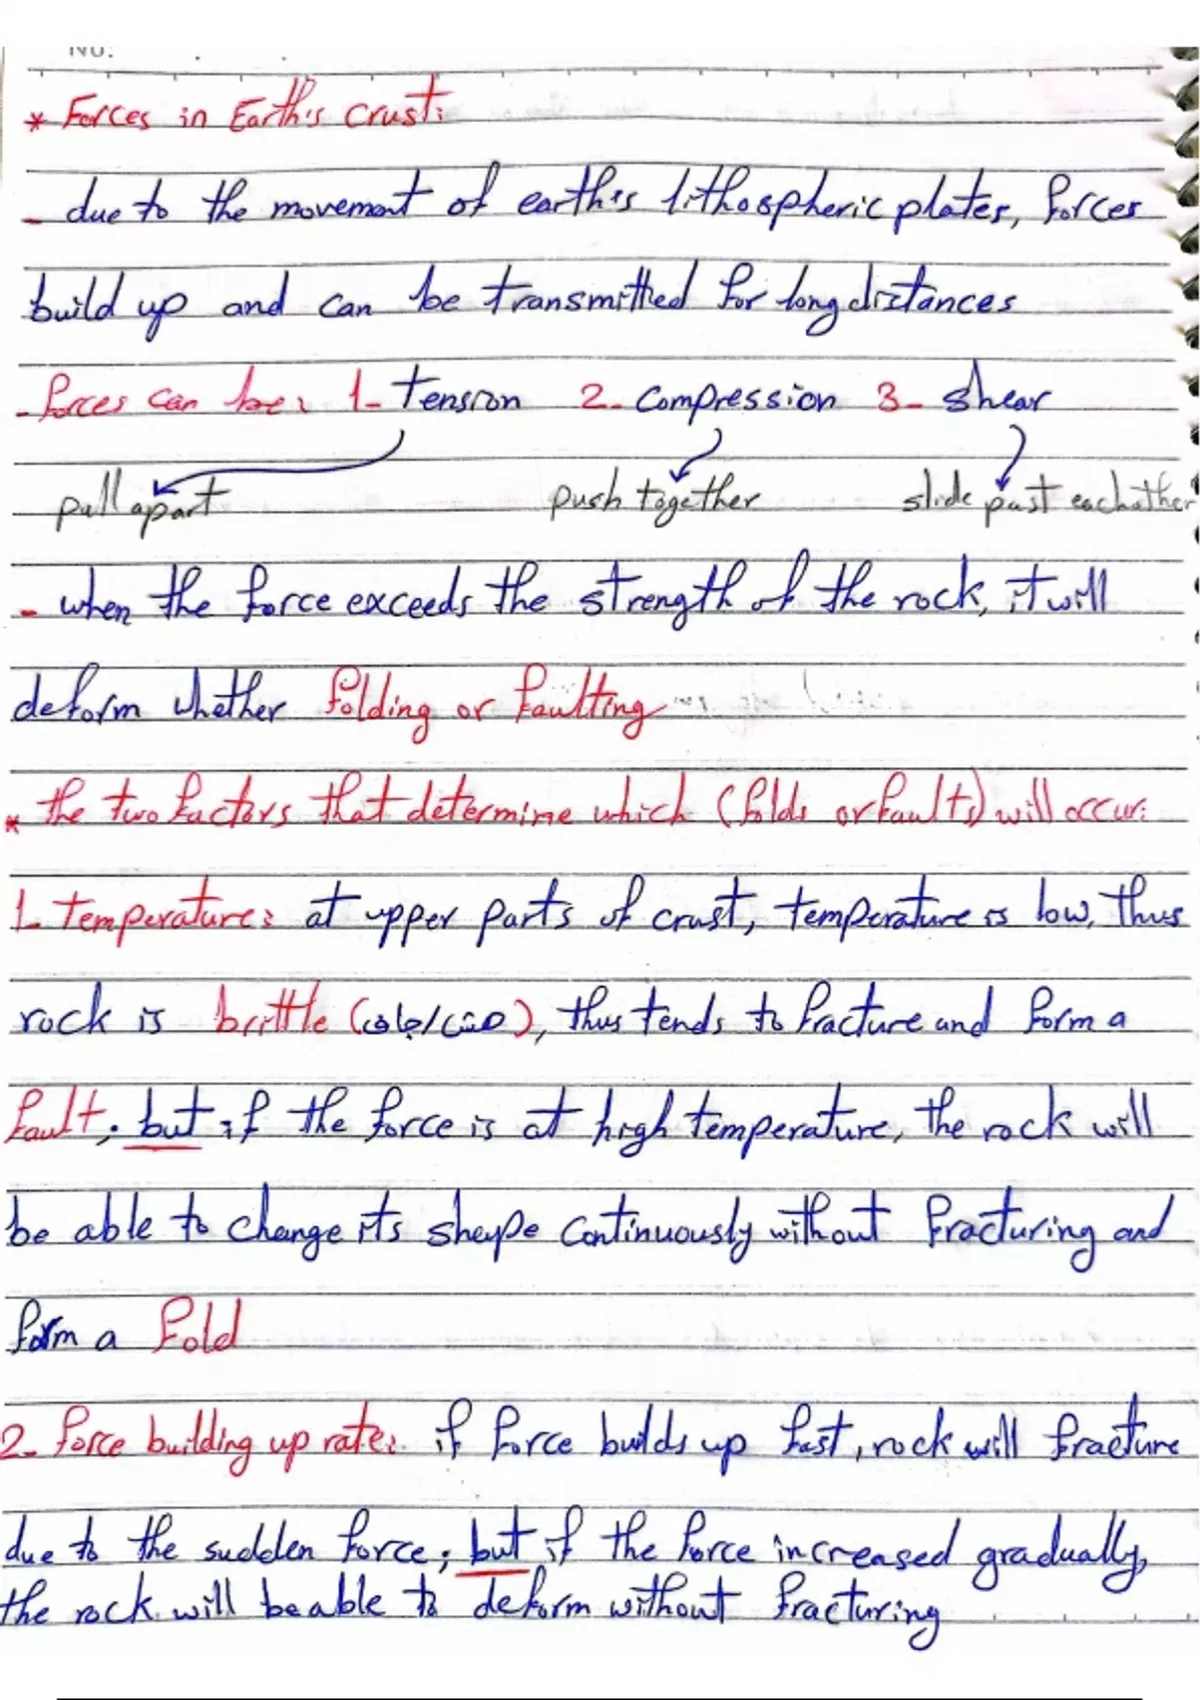 No:
* Forces in Earth's crust:
- due to the movement of earth's lithospheric plates, forces
build up and can be transmitted for long distances
- forces can be: 1- tension 2- compression 3- shear
pull apart push together slide past eachother
- when the force exceeds the strength of the rock, it will
deform whether folding or faulting
* the two factors that determine which (folds or faults) will occur:
1- temperature: at upper parts of crust, temperature is low, thus
rock is brittle (هش/جاف), thus tends to fracture and form a
fault; but if the force is at high temperature, the rock will
be able to change its shape continuously without fracturing and
form a fold
2- force building up rate: if force builds up fast, rock will fracture
due to the sudden force; but if the force increased gradually,
the rock will be able to deform without fracturing